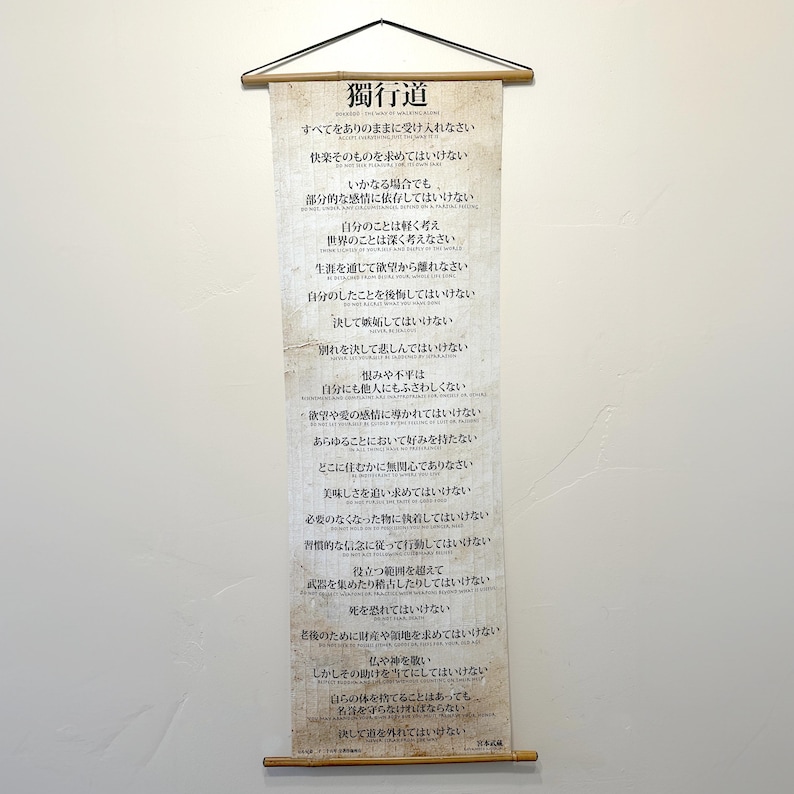 獨行道
DOKKODO - THE WAY OF WALKING ALONE
すべてをありのままに受け入れなさい
ACCEPT EVERYTHING JUST THE WAY IT IS
快楽そのものを求めてはいけない
DO NOT SEEK PLEASURE FOR ITS OWN SAKE
いかなる場合でも
部分的な感情に依存してはいけない
DO NOT, UNDER ANY CIRCUMSTANCES, DEPEND ON A PARTIAL FEELING
自分のことは軽く考え
世界のことは深く考えなさい
THINK LIGHTLY OF YOURSELF AND DEEPLY OF THE WORLD
生涯を通じて欲望から離れなさい
BE DETACHED FROM DESIRE YOUR WHOLE LIFE LONG
自分のしたことを後悔してはいけない
DO NOT REGRET WHAT YOU HAVE DONE
決して嫉妬してはいけない
NEVER BE JEALOUS
別れを決して悲しんではいけない
NEVER LET YOURSELF BE SADDENED BY SEPARATION
恨みや不平は
自分にも他人にもふさわしくない
RESENTMENT AND COMPLAINT ARE INAPPROPRIATE FOR ONESELF OR OTHERS
欲望や愛の感情に導かれてはいけない
DO NOT LET YOURSELF BE GUIDED BY THE FEELING OF LUST OR PASSION
あらゆることにおいて好みを持たない
IN ALL THINGS HAVE NO PREFERENCES
どこに住むかに無関心でありなさい
BE INDIFFERENT TO WHERE YOU LIVE
美味しさを追い求めてはいけない
DO NOT PURSUE THE TASTE OF GOOD FOOD
必要のなくなった物に執着してはいけない
DO NOT HOLD ON TO POSSESSIONS YOU NO LONGER NEED
習慣的な信念に従って行動してはいけない
DO NOT ACT FOLLOWING CUSTOMARY BELIEFS
役立つ範囲を超えて
武器を集めたり稽古したりしてはいけない
DO NOT COLLECT WEAPONS OR PRACTICE WITH WEAPONS BEYOND WHAT IS USEFUL
死を恐れてはいけない
DO NOT FEAR DEATH
老後のために財産や領地を求めてはいけない
DO NOT SEEK TO POSSESS EITHER GOODS OR FIEFS FOR YOUR OLD AGE
仏や神を敬い
しかしその助けを当てにしてはいけない
RESPECT BUDDHA AND THE GODS WITHOUT COUNTING ON THEIR HELP
自らの体を捨てることはあっても
名誉を守らなければならない
YOU MAY ABANDON YOUR OWN BODY BUT YOU MUST PRESERVE YOUR HONOR
決して道を外れてはいけない
NEVER STRAY FROM THE WAY
宮本武蔵